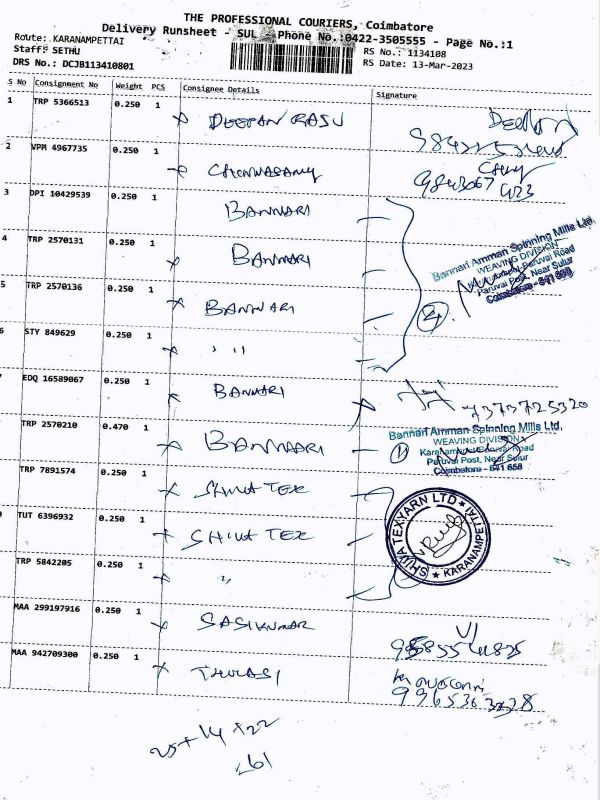 THE PROFESSIONAL COURIERS, Coimbatore
Delivery Runsheet - SUL - Phone No.:0422-3505555 - Page No.:1
Route: KARANAMPETTAI
RS No.: 1134108
Staff: SETHU
RS Date: 13-Mar-2023
DRS No.: DCJB113410801
S No Consignment No Weight PCS Consignee Details Signature
1 TRP 5366513 0.250 1 DEEPAN RAJU
2 VPM 4967735 0.250 1
3 DPI 10429539 0.250 1 BANNARI
4 TRP 2570131 0.250 1 BANNARI
5 TRP 2570136 0.250 1 BANNARI
6 STY 849629 0.250 1 , 11
EDQ 16589067 0.250 1 BANNARI 7373725320
TRP 2570210 0.470 1 BANNARI
TRP 7891574 0.250 1 SHIVA TEX
TUT 6396932 0.250 1 SHIVA TEX
TRP 5842205 0.250 1 "
MAA 299197916 0.250 1 SASIKUMAR
MAA 942709300 0.250 1 THULASI
Bannari Amman Spinning Mills Ltd.
WEAVING DIVISION
Paruvai Post, Near Sulur
Coimbatore - 641 658
Bannari Amman Spinning Mills Ltd.
WEAVING DIVISION
Paruvai Post, Near Sulur
Coimbatore - 641 658
SHIVA TEXYARN LTD ★ KARANAMPETTAI ★